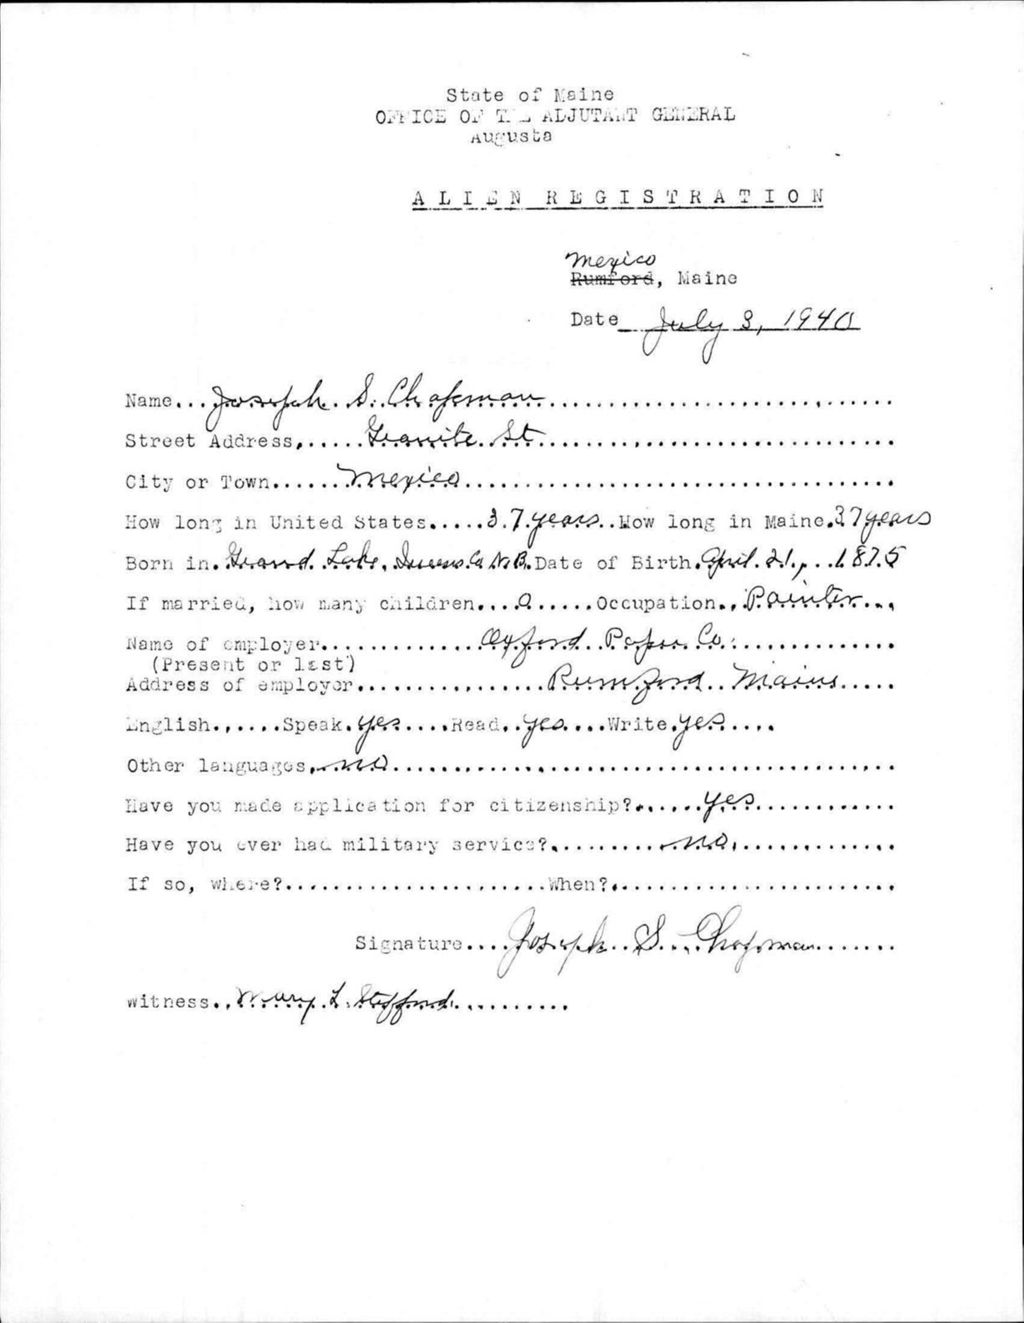 State of Maine
OFFICE OF THE ADJUTANT GENERAL
Augusta
ALIEN REGISTRATION
Mexico
Rumford, Maine
Date July 3, 1940
Name...Joseph S. Chapman
Street Address......Granite St
City or Town......Mexico
How long in United States.....37 years..How long in Maine.37 years
Born in.Grand Lake, Queens Co N.B.Date of Birth.April 21, 1875
If married, how many children....0.....Occupation..Painter...
Name of employer.............Oxford Paper Co.
(Present or last)
Address of employer................Rumford Maine.....
English......Speak.yes....Read..yes....Write.yes....
Other languages..no
Have you made application for citizenship?......yes
Have you ever had military service?..........no
If so, where?......................When?
Signature....Joseph S. Chapman.......
Witness..Mary L. Stafford